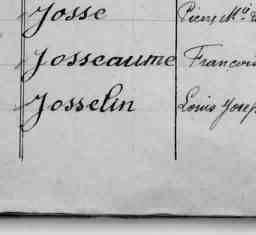 Josse Pierre M
Josseaume François
Josselin Louis Josep